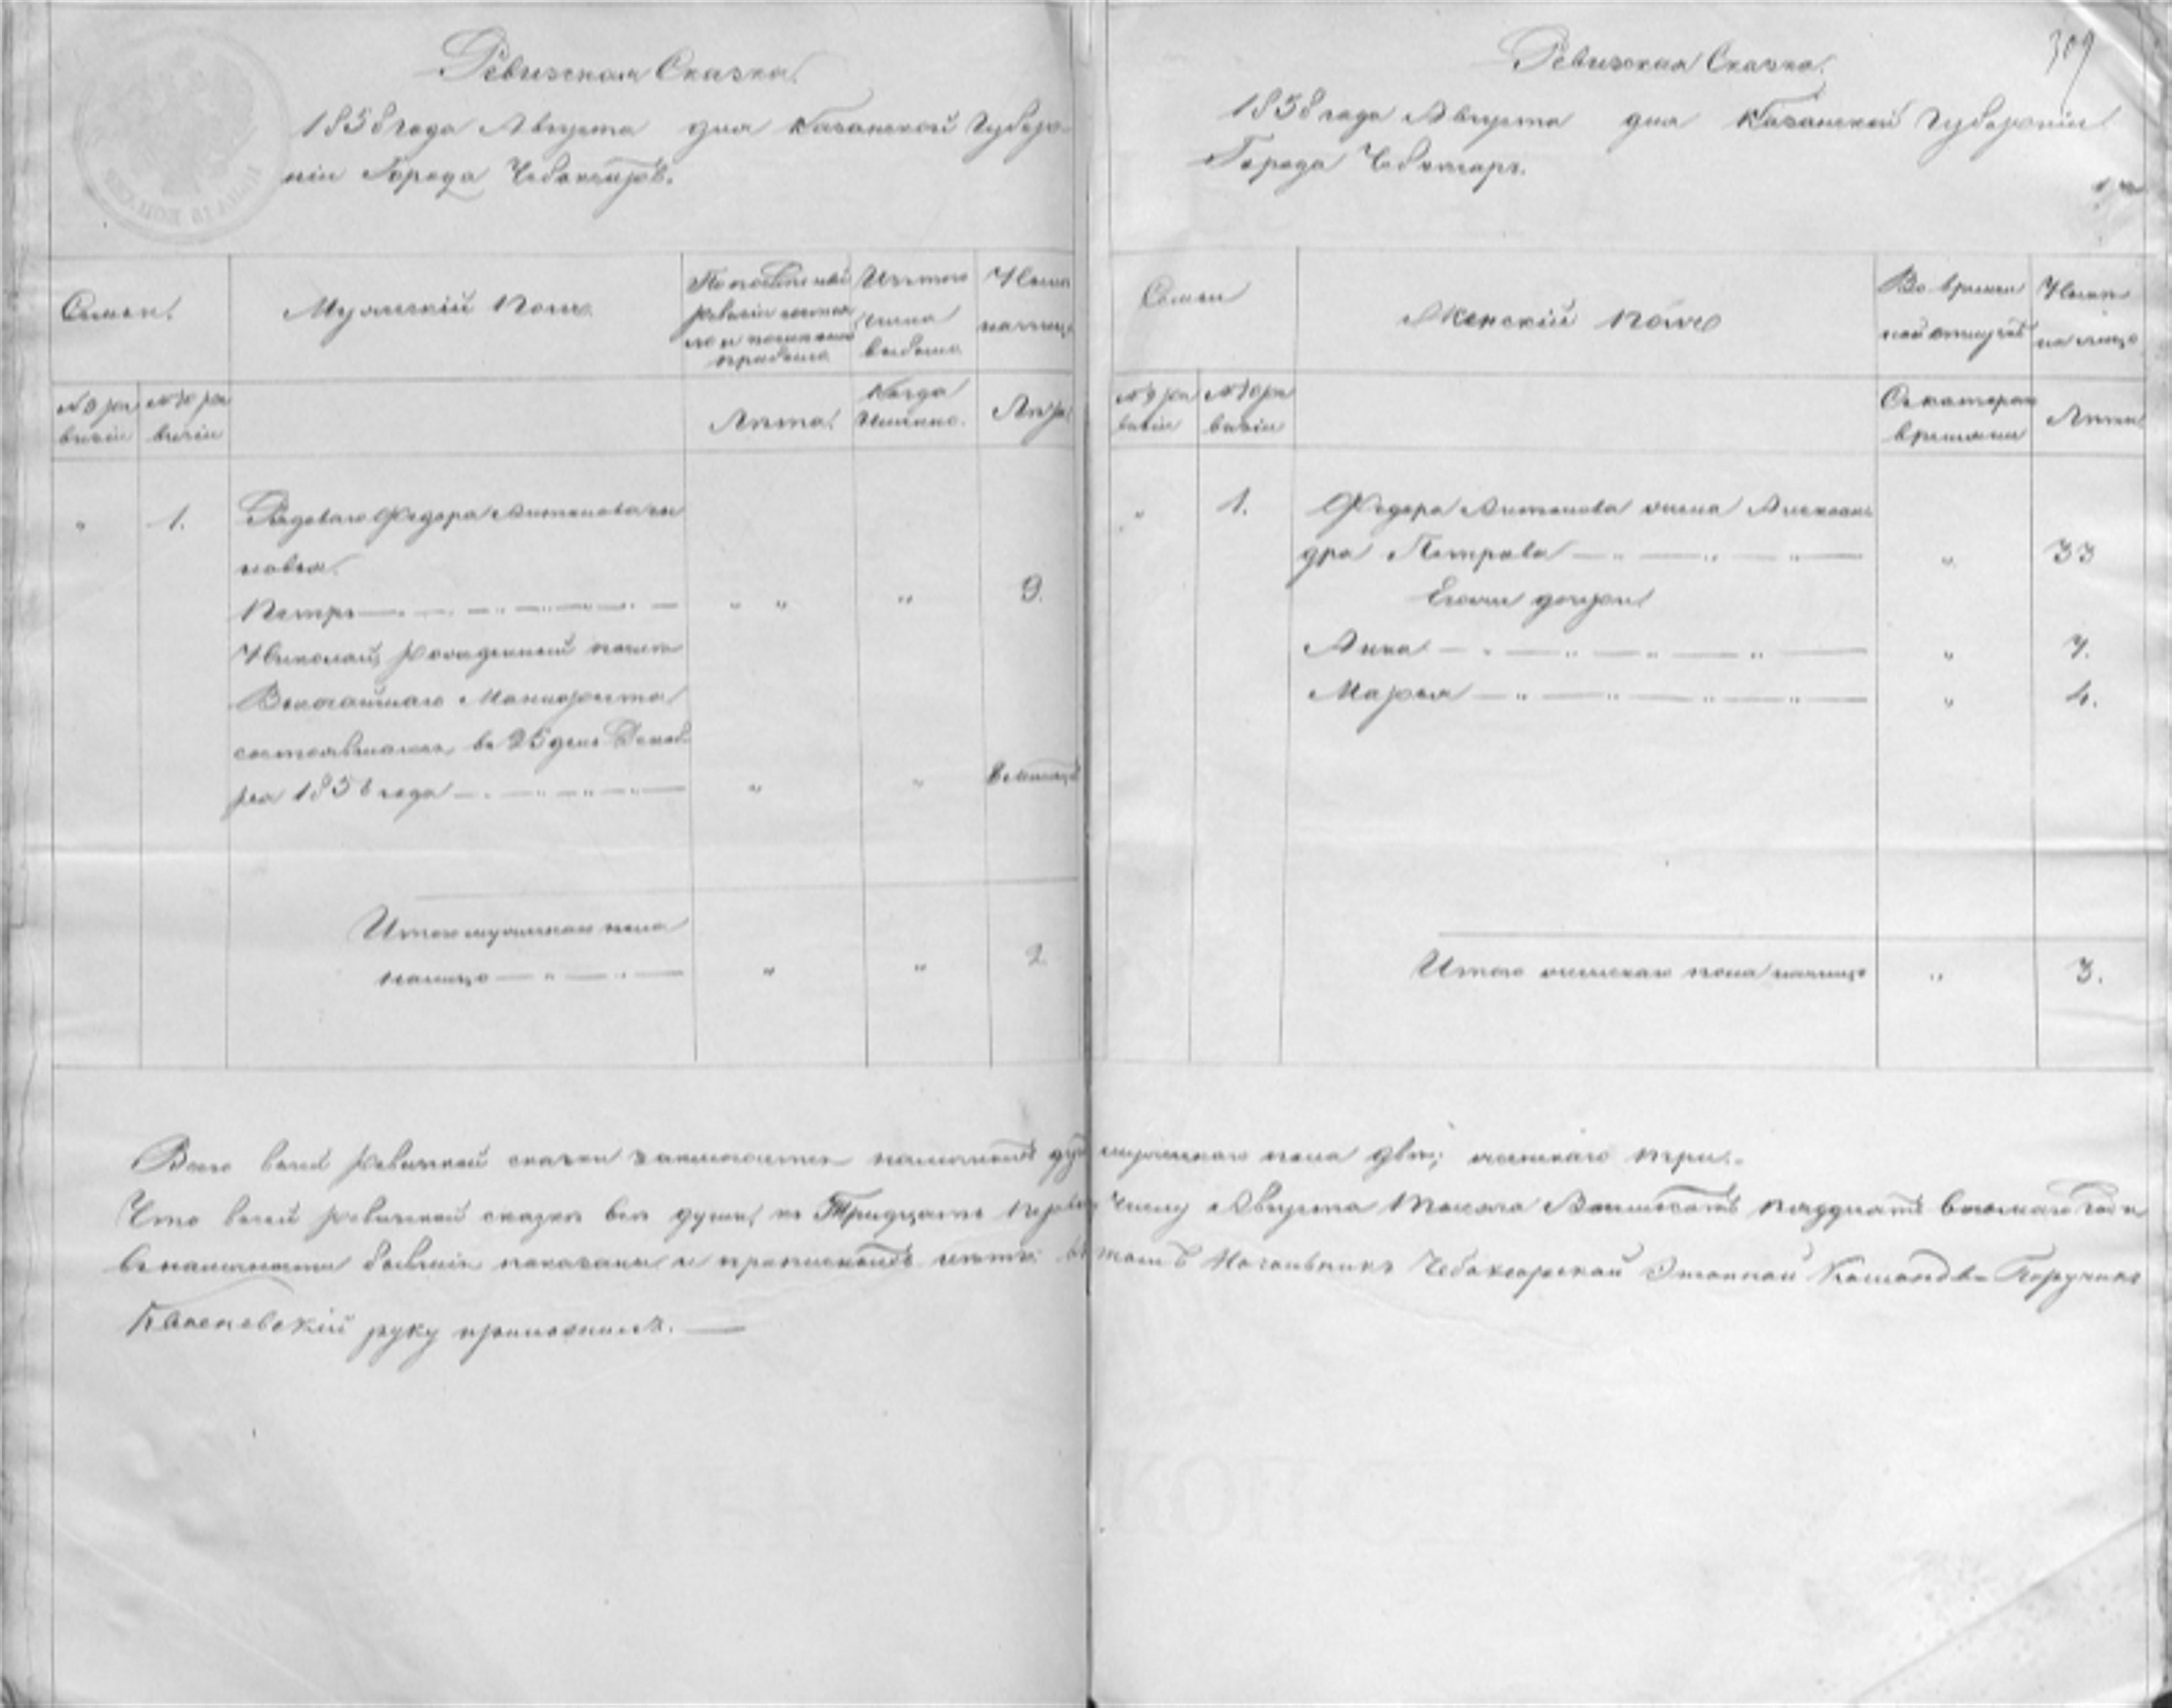 Ревизская Сказка.
1858 года Августа дня Казанской Губер-
ніи Города Чебоксаръ.
Семьи.
Мужескій полъ.
По послѣдней
ревизіи состоя
ло и послѣ того
прибыло
Изъ того
числа
выбыло
Нынѣ
налицо
№ 9 ре
визіи
№ 10 ре
визіи
Лѣта.
Когда
Именно.
Лѣта
" 1. Рядоваго Федора Антонова сы
новья.
Петръ " " " 9.
Николай, рожденный послѣ
Высочайшаго Манифеста
состоявшагося въ 25 день Декаб
ря 1856 года " "
Итого мужеска пола
налицо " " 2
309
Ревизская Сказка.
1858 года Августа дня Казанской Губерніи
Города Чебоксаръ.
Семьи
Женскій полъ
Во времен
ной отлучкѣ
Нынѣ
на лицо
№ 9 ре
визіи
№ 10 ре
визіи
Съ котораго
времени
Лѣта
" 1. Федора Антонова жена Алексан
дра Петрова " 33
Егоже дочери
Анна " 7.
Марья " 4.
Итого женскаго пола налицо " 3.
Всего въ сей ревизской сказкѣ заключается наличныхъ душъ мужескаго пола двѣ; женскаго три.
Что въ сей ревизской сказкѣ всѣ души, къ Тридцать первому числу Августа Тысяча Восемьсотъ пятдесятъ восьмаго года
въ наличности бывшія показаны и прописныхъ нѣтъ: въ томъ Начальникъ Чебоксарской Этапной Команды Поручикъ
руку приложилъ.